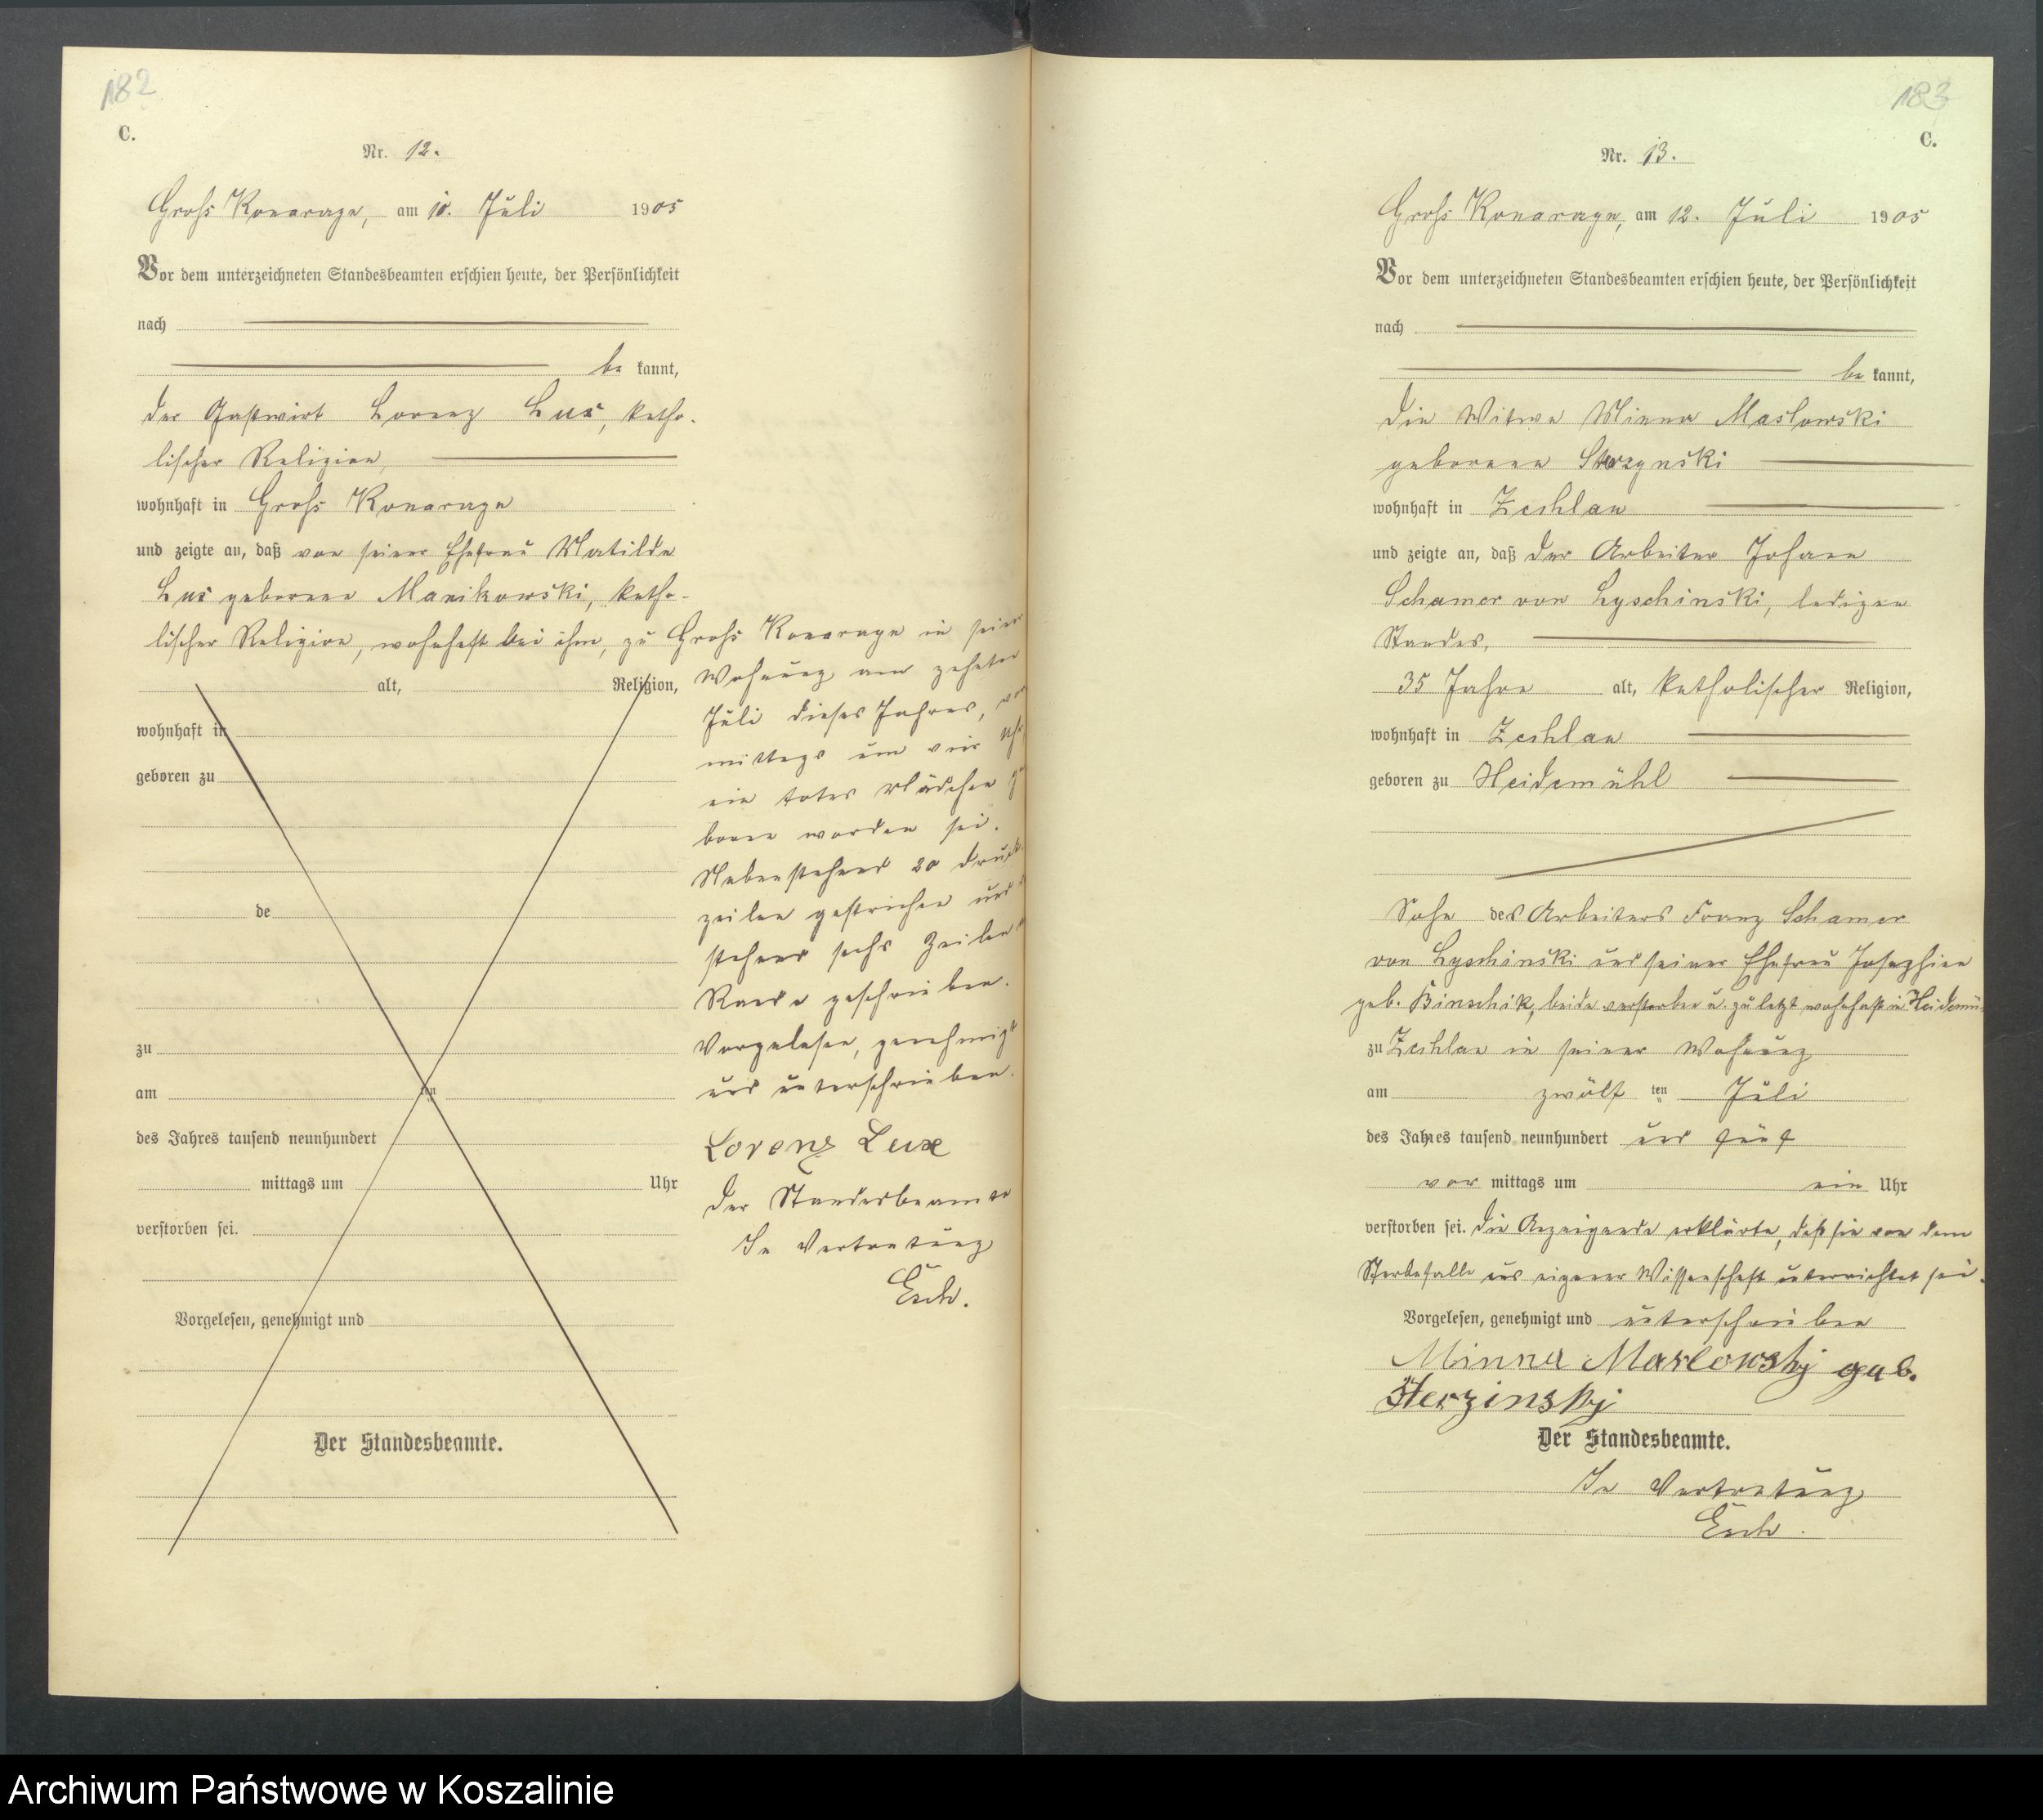 182
C.
Nr. 12.
Groß Konarzyn, am 10. Juli 1905
Vor dem unterzeichneten Standesbeamten erschien heute, der Persönlichkeit
nach
be kannt,
der Gastwirt Lorenz Lux, katho-
lischer Religion,
wohnhaft in Groß Konarzyn
und zeigte an, daß von seiner Ehefrau Matilde
Lux geborene Manikowski, katho-
lischer Religion, wohnhaft bei ihm, zu Groß Konarzyn in seiner
alt, Religion,
Wohnung am zehnten
Juli dieses Jahres, vor
wohnhaft in
mittags um vier Uhr
geboren zu
ein totes Mädchen ge
boren worden sei.
Nebenstehend 20 Druck
zeilen gestrichen und
de
stehend sechs Zeilen
Rande geschrieben.
Vorgelesen, genehmigt
zu
und unterschrieben.
am ten
des Jahres tausend neunhundert
Lorenz Lux
mittags um Uhr
Der Standesbeamte
verstorben sei.
In Vertretung
Esch.
Vorgelesen, genehmigt und
Der Standesbeamte.
183
C.
Nr. 13.
Groß Konarzyn, am 12. Juli 1905
Vor dem unterzeichneten Standesbeamten erschien heute, der Persönlichkeit
nach
be kannt,
die Witwe Minna Maslowski
geborene Sterzynski
wohnhaft in Zechlau
und zeigte an, daß der Arbeiter Johann
Schamer von Lyschinski, ledigen
Standes,
35 Jahre alt, katholischer Religion,
wohnhaft in Zechlau
geboren zu Heidemühl
Sohn des Arbeiters Franz Schamer
von Lyschinski und seiner Ehefrau Josephine
geb. Binschik, beide verstorben u. zuletzt wohnhaft in Heidemü
zu Zechlau in seiner Wohnung
am zwölf ten Juli
des Jahres tausend neunhundert und fünf
vor mittags um ein Uhr
verstorben sei. Die Anzeigende erklärte, daß sie von dem
Sterbefalle aus eigener Wissenschaft unterrichtet sei.
Vorgelesen, genehmigt und unterschrieben
Minna Maslowsky geb.
Sterzinsky
Der Standesbeamte.
In Vertretung
Esch.
Archiwum Państwowe w Koszalinie